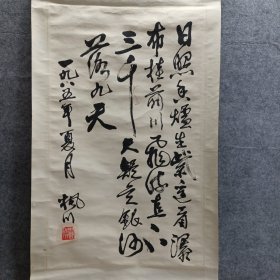 日照香炉生紫烟遥看瀑
布挂前川飞流直下
三千尺疑是银河
落九天
一九八五年夏月 枫川